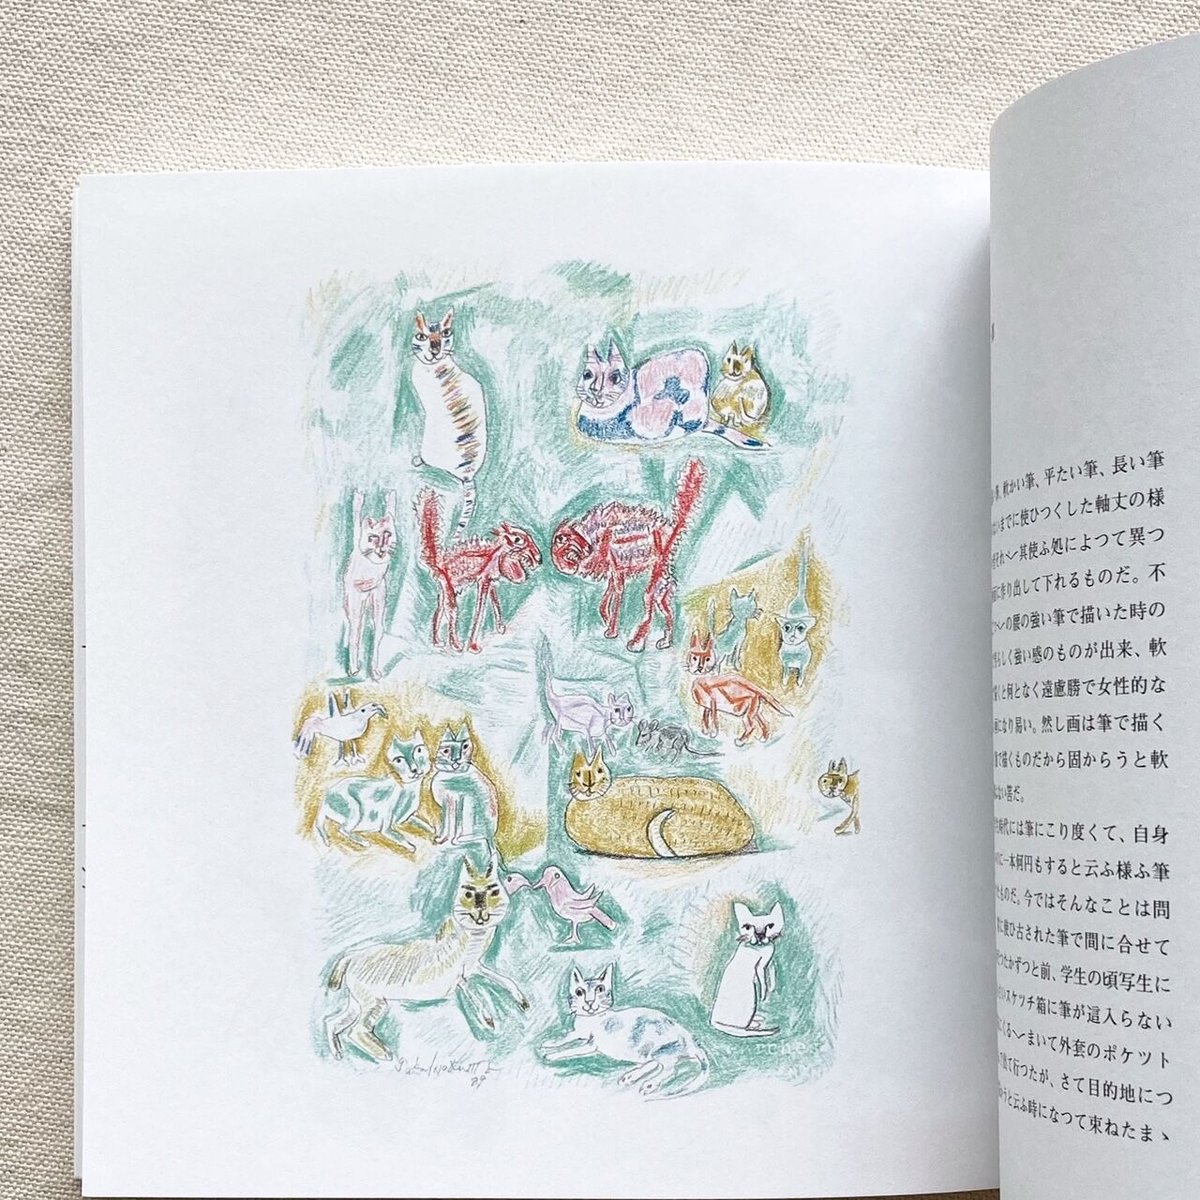 軟かい筆、平たい筆、長い筆
までに使ひつくした軸丈の様
其使ふ処によつて異つ
に作り出して下れるものだ。不
の腰の強い筆で描いた時の
らしく強い感のものが出来、軟
くと何となく遠慮勝で女性的な
になり易い。然し画は筆で描く
で描くものだから固からうと軟
はない筈だ。
時代には筆にこり度くて、自身
に一本何円もすると云ふ様ふ筆
たものだ。今ではそんなことは問
に使ひ古された筆で間に合せて
つたかずつと前、学生の頃写生に
スケッチ箱に筆が這入らない
くる〳〵まいて外套のポケット
て行つたが、さて目的地につ
うと云ふ時になつて束ねたまゝ
89